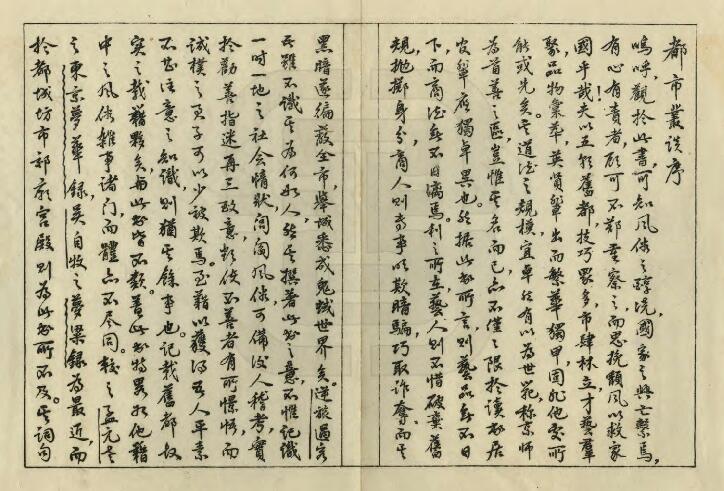 都市叢談序
嗚呼，觀於此書，可知風俗之醇澆，國家之興亡繫焉，
有心有責者，顧可不鄭重察之，而思挽頹風以救家
國乎哉！夫以五朝舊都，技巧眾多，市肆林立，才藝羣
聚，品物彙萃，英賢輩出，而繁華獨甲，固非他處所
能或先矣。其道德之規模，宜卓然有以為世範，稱京師
為首善之區，豈惟其名而已，亦不僅之限於讀書居
官輩為獨卓異也。然據此書所言，則藝品無不日
下，而商德無不日漓焉，利之所在，藝人則不惜破棄舊
規，拋擲身分，商人則專事以欺瞞騙，巧取詐奪，而其
黑暗遂徧蔽全市，舉城悉成鬼蜮世界矣。逆旅過客
吾雖不識其為何如人，然其撰著此書之意，不惟記識
一時一地之社會情狀，閭閻風俗，可備後人稽考，實
於勸善指迷再三致意，頗使不善者有所憬悟，而
誠樸之君子可以少被欺焉。至藉以獲得吾人平素
不甚注意之知識，則猶其餘事也。記載舊都故
實之載籍夥矣，與此書皆不類，蓋此書特異於他籍
中之風俗雜事諸門，而體亦不盡同。較之孟元老
之東京夢華錄，吳自牧之夢粱錄為最近，而
於都城坊市祁廟宮殿則為此書所不及。其詞句